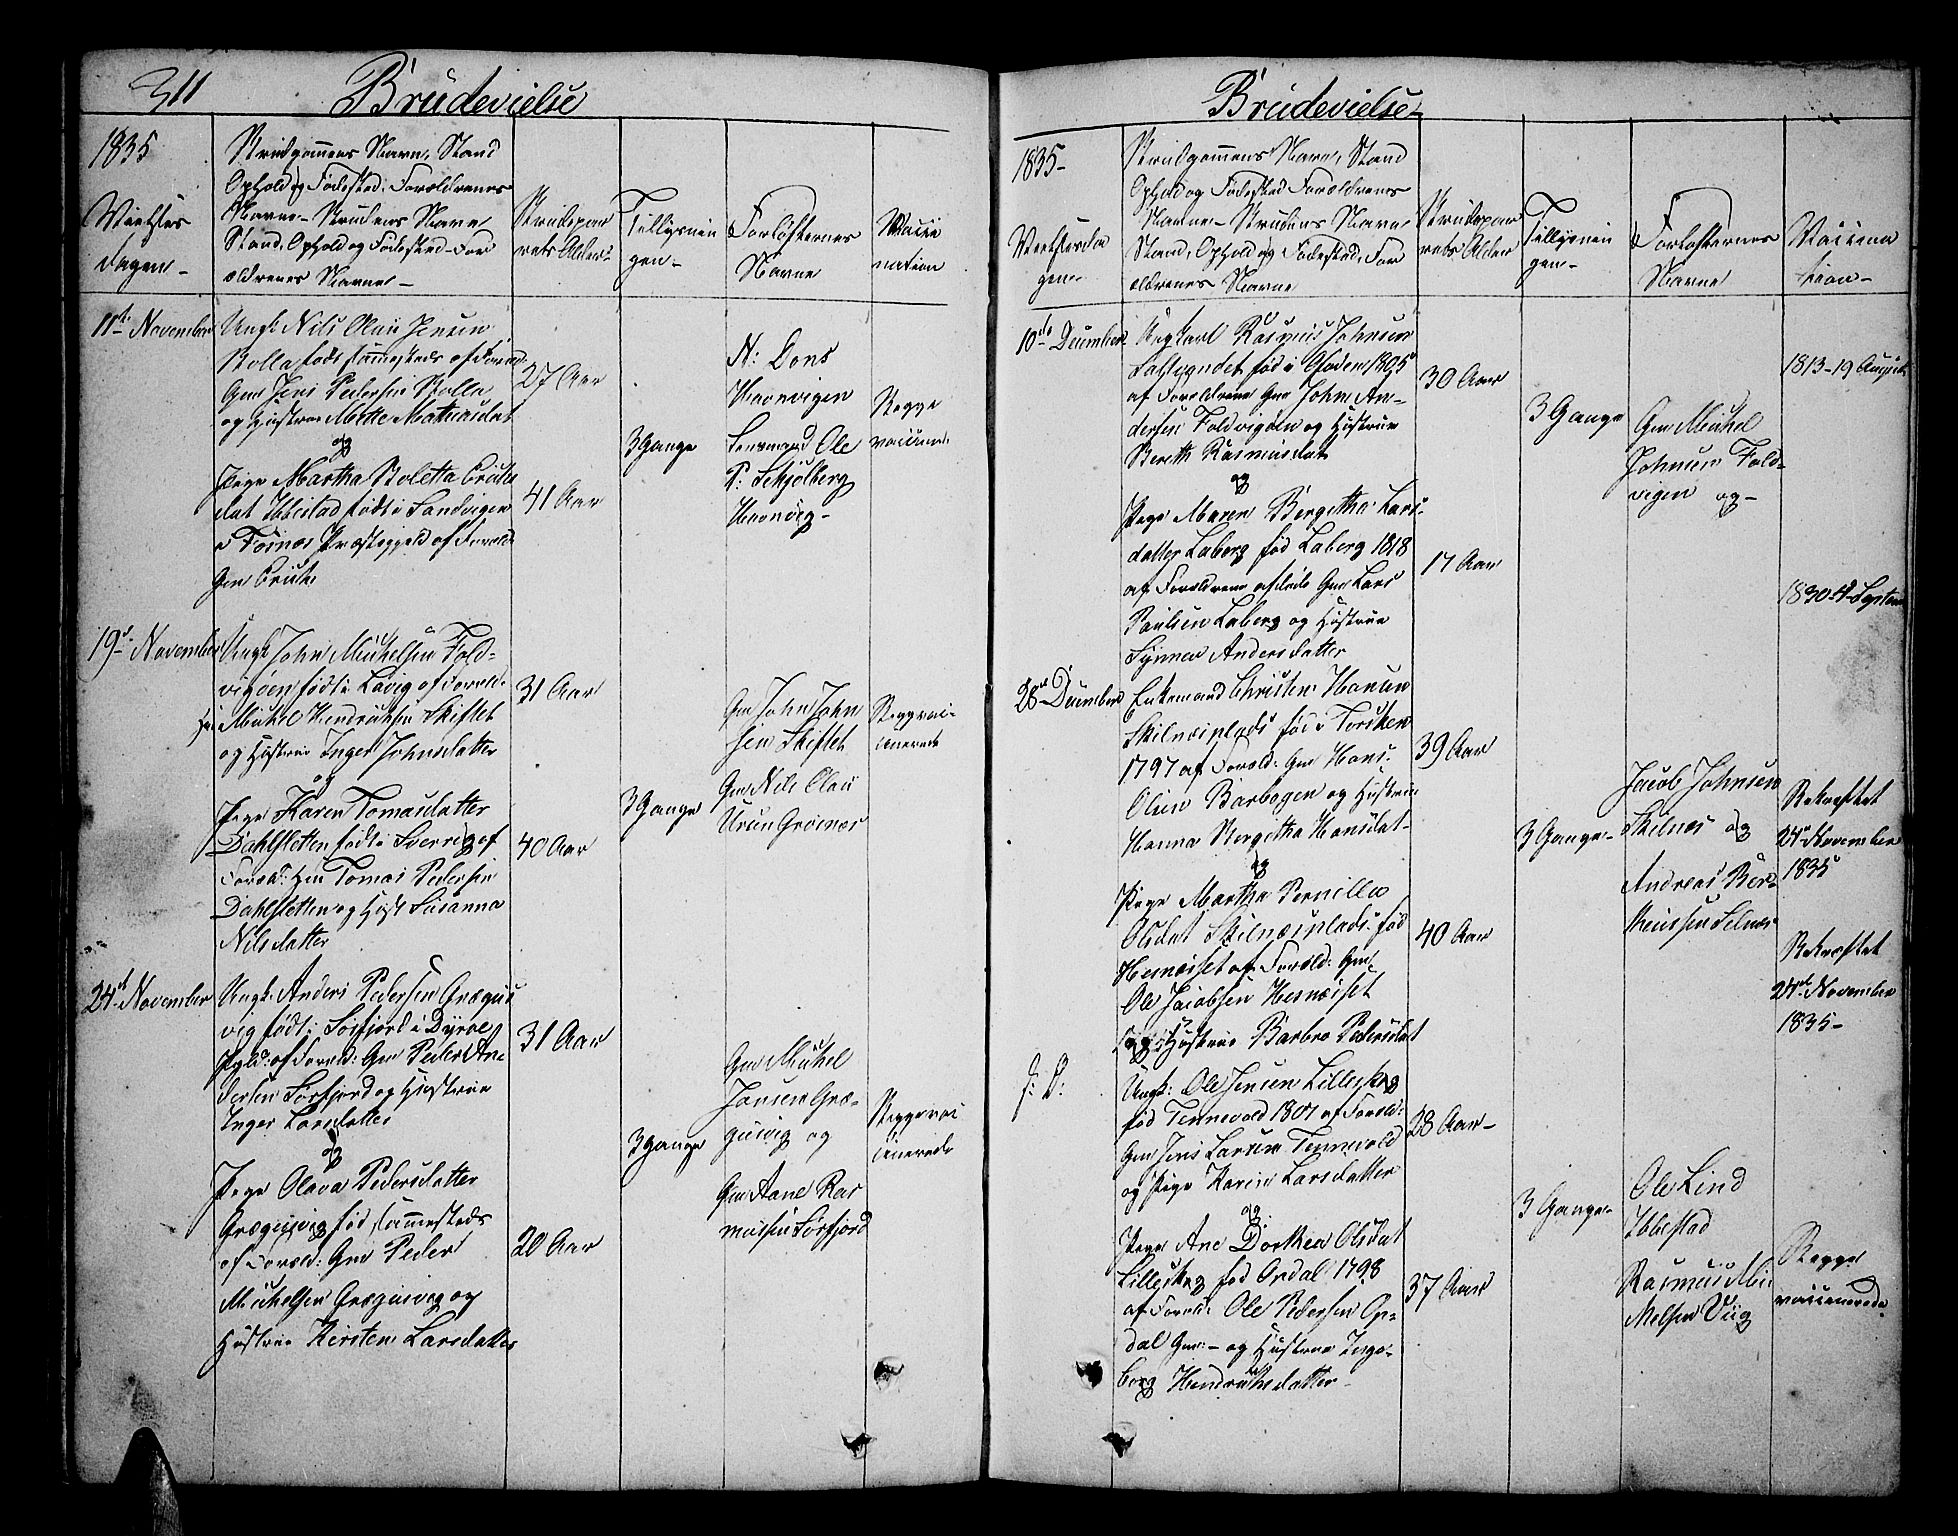 311 Brudevielse
1835
Vielses
dagen -
Brudgommens Navn, Stand
Ophold og Fødested. Forældrenes
Navne - Brudens Navn
Stand, Ophold og Fødested - For
ældrenes Navne -
Brudepar
rets Alder -
Tillysnin
gen -
Forlofternes
Navne
Vacci
nation
11te November
Ungk: Nils Olaii Jensen
Rolla født sammesteds af Foræld:
Gm Jens Pedersen Rolla
og Hustrue Mette Mathiasdat
og
Pige Martha Boletta
dat Ibbestad født i Sandvigen
i Præstegjeld af Foræld:
Gm
27 Aar
41 Aar
3 Gange
N: Dons
Havnvigen
Lensmand Ole
P: Schjølberg
Havnvig -
Begge
vaccine:
19de November
Ungk: John Michelsen Fold-
vigøen født i Løvig af Foræld:
Michel Hendriksen Skiftet
og Hustrue Inger Johnsdatter
og
Pige Karen Tomasdatter
Dahlsletten født i Sverrig af
Foræld: Gm Tomas Pedersen
Dahlsletten og Hust Susanna
Nilsdatter
31 Aar
40 Aar
3 Gange
Gm John John
sen Skiftet
Gm Nils Olai
Grønnes
Begge vac-
cinerede
24de November
Ungk: Anders Pedersen Grægus
vig født i Sørfjord i Dyrøe
Pgld: af Foræld: Gm Peder An
dersen Sørfjord og Hustrue
Inger Larsdatter
og
Pige Olava Pedersdatter
Græguvig fød sammesteds
af Foræld: Gm Peder
Michelsen Græguvig og
Hustrue Kirsten Larsdatter
31 Aar
20 Aar
3 Gange
Gm Michel
Jansen Græ-
gusvig og
Gm Aane Ras
musen Sørfjord
Begge vac
cinerede
Brudevielse
1835 -
Vielsesda
gen -
Brudgommens Navn, Stand
Ophold og Fødested Forældrenes
Navne - Brudens Navn
Stand, Ophold og Fødested, For
ældrenes Navne
Brudepar
rets Alder
Tillysnin
gen -
Forlofternes
Navne
Vaccina
tion -
10de December
Ungkarl Rasmus Johnsen
født i 1805
af Forældrene Gm John An-
dersen Foldvigøen og Hustrue
Bereth Rasmusdat
og
Pige Maren Bergitha Lars-
datter Laberg fød Laberg 1818
af Forældrene afdøde Gm Lars
Paulsen Laberg og Hustrue
Synnev Andersdatter
30 Aar
17 Aar
3 Gange
Gm Michel
Johnsen Fold-
vigen og -
1813 - 19 August
1830 - 4 Septem
28de December
Enkemand Christen Hansen
Skilnesplads fød i Torsken
1797 af Foræld: Gm Hans
Olsen Barbogen og Hustrue
Hanna Bergitha Hansdat -
og
Pige Martha Pernilla
Olsdat Skilnesplads fød
Hemnæsset af Foræld: Gm
Ole Jacobsen Hesnæsset
og Hustrue Barbro Pedersdat
39 Aar
40 Aar
3 Gange -
Jacob Johnsen
Skilnes og
Andreas Ber-
Selnes
Bekræftet
24de November
1835
Bekræftet
24de November
1835 -
J: D:
Ungk: Ole Jensen Lilleskog
fød Tennevold 1807 af Foræld:
Gm Jens Larsen Tennevold
og Pige Karen Larsdatter
og
Pige Ane Dorthea Olsdat
Lilleskog fød Opdal 1798
af Foræld: Ole Pedersen Op-
dal Gm: - og Hustrue Inge-
borg Hendriksdatter -
28 Aar -
37 Aar
3 Gange -
Ole Lind
Ibbestad
Rasmus Mi
Viig
Begge
vaccinerede